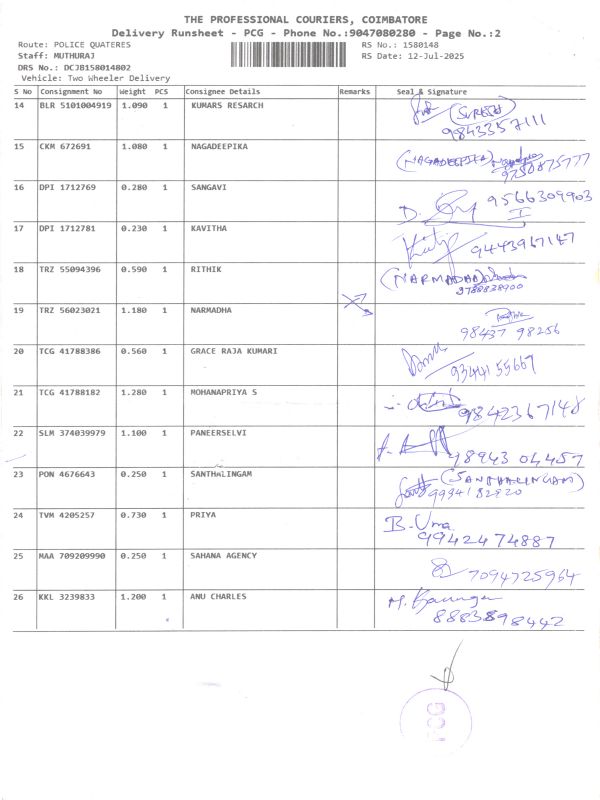 THE PROFESSIONAL COURIERS, COIMBATORE
Delivery Runsheet - PCG - Phone No.:9047080280 - Page No.:2
Route: POLICE QUATERES RS No.: 1580148
Staff: MUTHURAJ RS Date: 12-Jul-2025
DRS No.: DCJB158014802
Vehicle: Two Wheeler Delivery
S No Consignment No Weight PCS Consignee Details Remarks Seal & Signature
14 BLR 5101004919 1.090 1 KUMARS RESARCH (SURESH)
9843357111
15 CKM 672691 1.080 1 NAGADEEPIKA (NAGADEEPIKA)
9750875777
16 DPI 1712769 0.280 1 SANGAVI 9566309903
17 DPI 1712781 0.230 1 KAVITHA 9443967147
18 TRZ 55094396 0.590 1 RITHIK (NARMADHA)
9788838900
19 TRZ 56023021 1.180 1 NARMADHA
98437 98256
20 TCG 41788386 0.560 1 GRACE RAJA KUMARI
93441 55667
21 TCG 41788182 1.280 1 MOHANAPRIYA S
9842367148
22 SLM 374039979 1.100 1 PANEERSELVI
98943 04457
23 PON 4676643 0.250 1 SANTHALINGAM (SANTHALINGAM)
9994182820
24 TVM 4205257 0.730 1 PRIYA B. Uma
9942474887
25 MAA 709209990 0.250 1 SAHANA AGENCY
7094725964
26 KKL 3239833 1.200 1 ANU CHARLES
8883898442